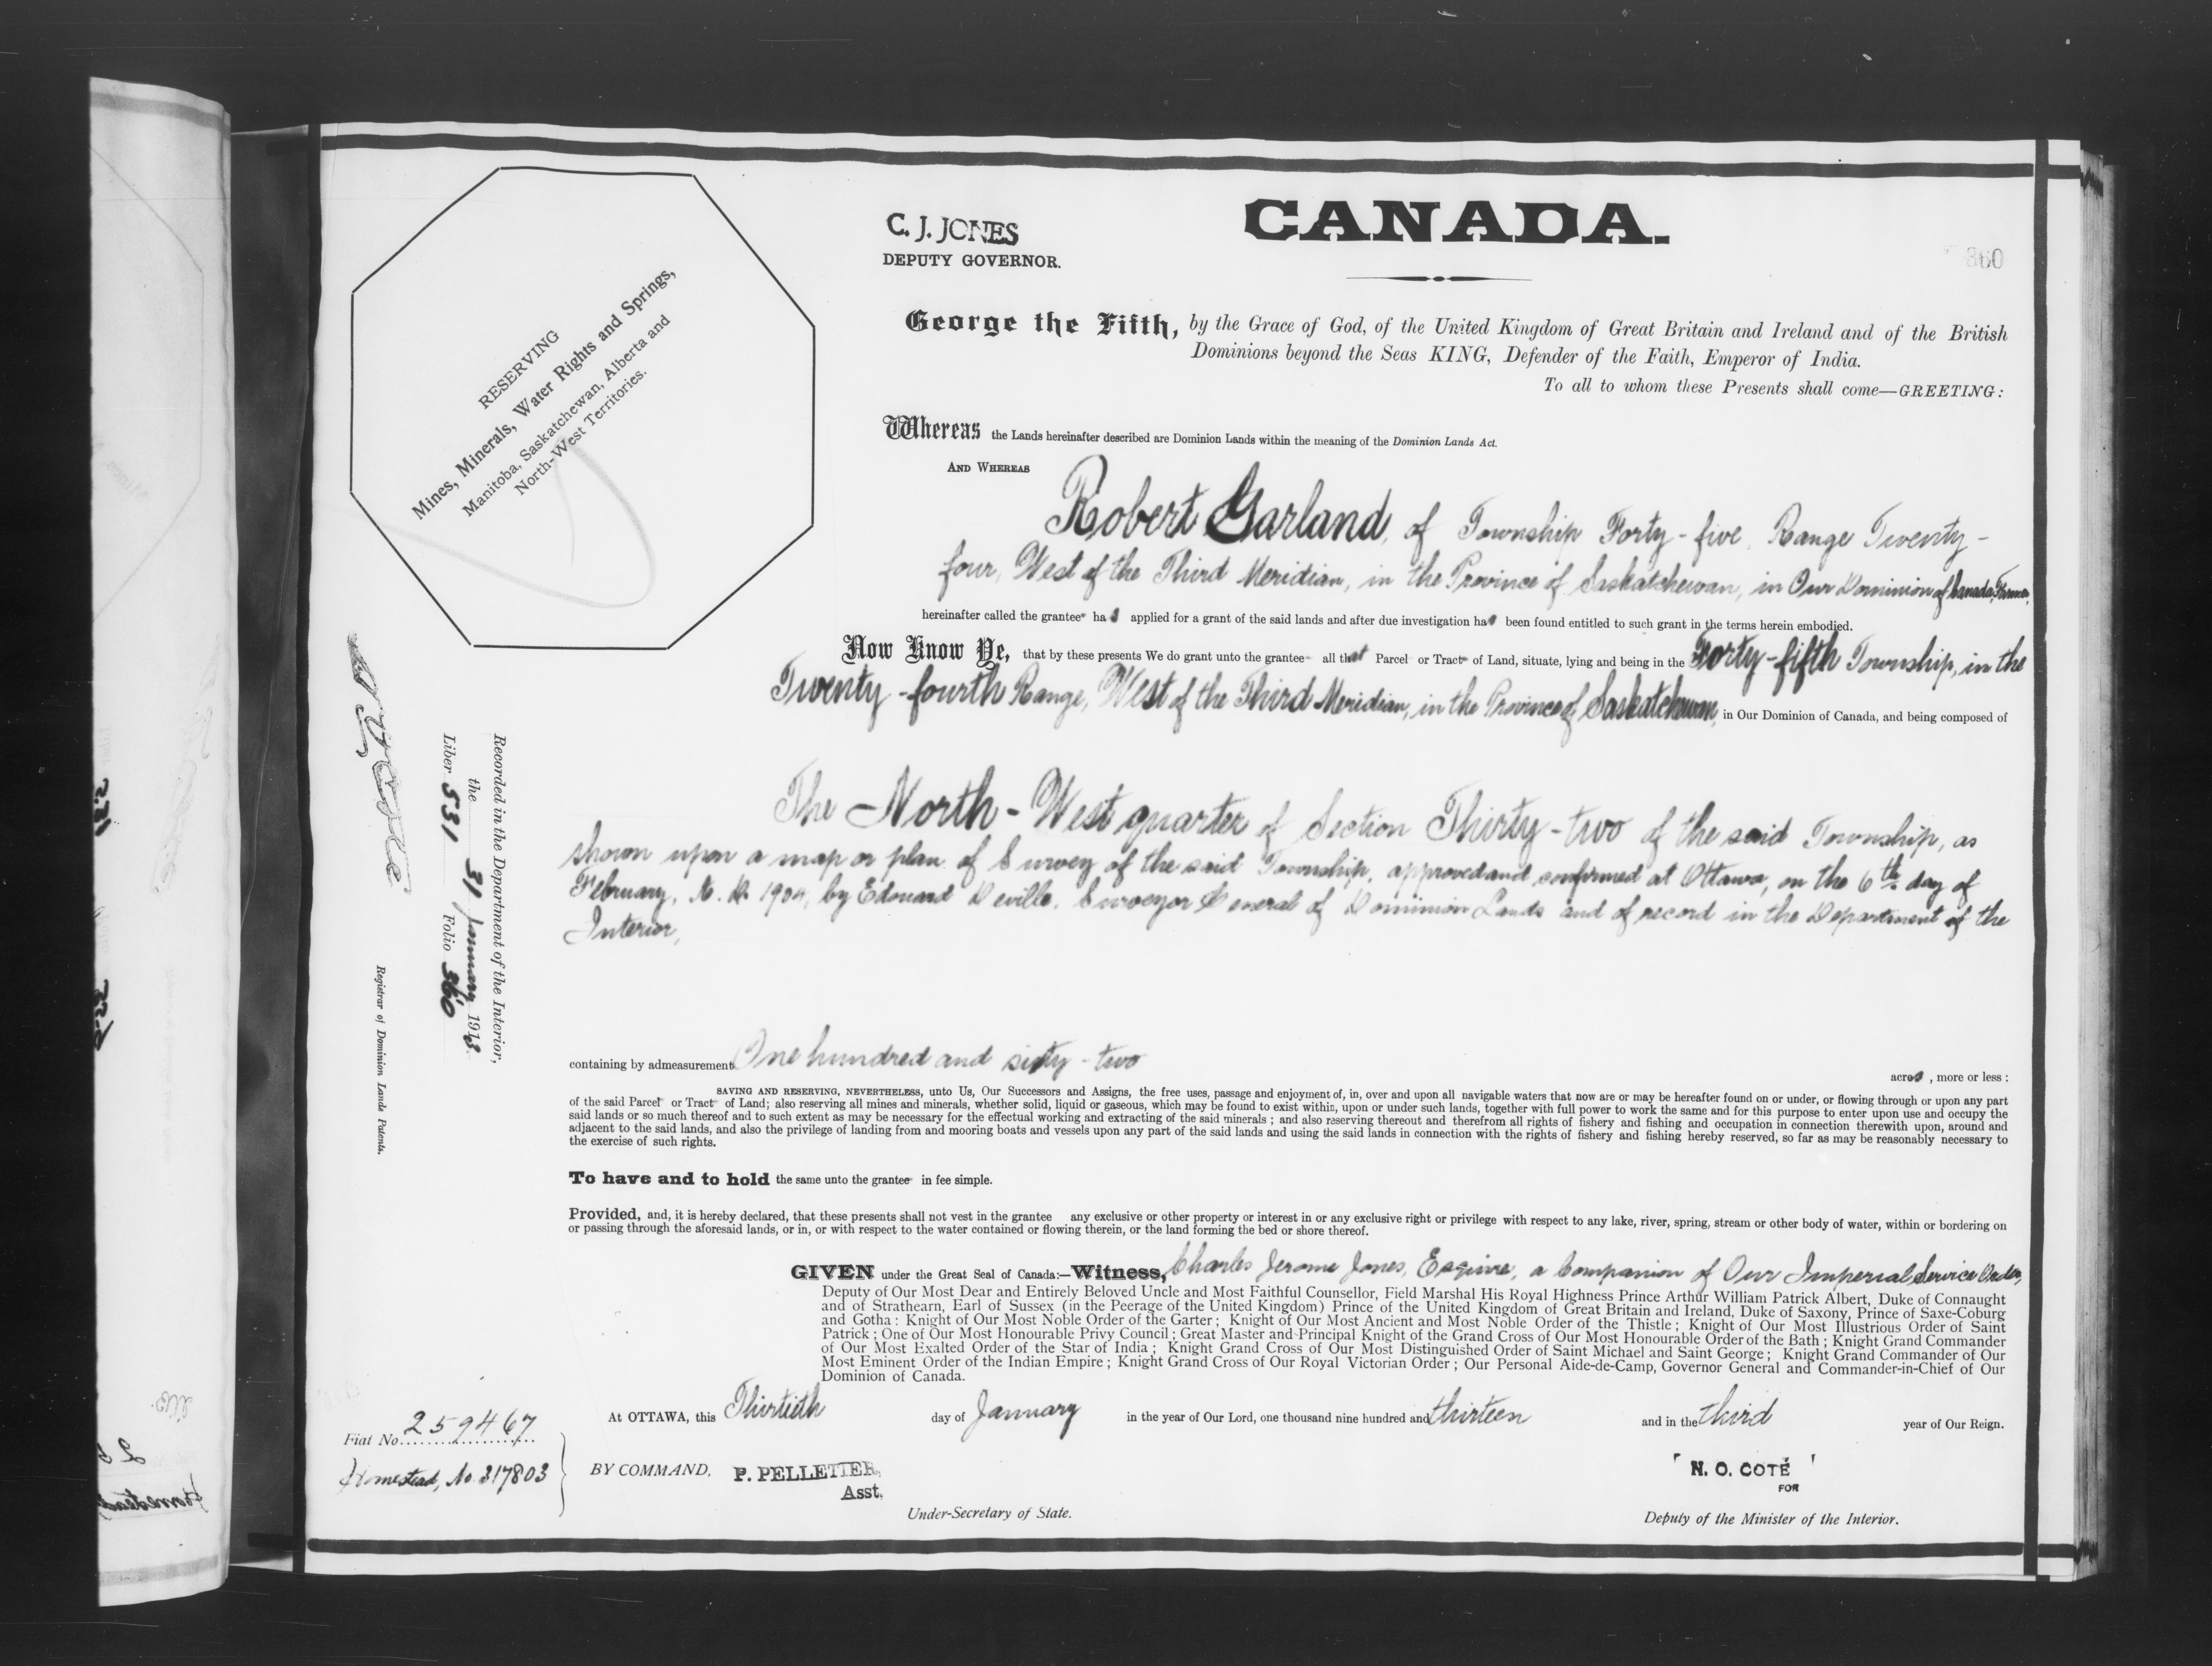 CANADA.
C. J. JONES
DEPUTY GOVERNOR.
360
RESERVING
Mines, Minerals, Water Rights and Springs,
Manitoba, Saskatchewan, Alberta and
North-West Territories.
George the Fifth, by the Grace of God, of the United Kingdom of Great Britain and Ireland and of the British
Dominions beyond the Seas KING, Defender of the Faith, Emperor of India.
To all to whom these Presents shall come—GREETING:
Whereas the Lands hereinafter described are Dominion Lands within the meaning of the Dominion Lands Act.
AND WHEREAS
Robert Garland, of Township Forty-five, Range Twenty-
four, West of the Third Meridian, in the Province of Saskatchewan, in Our Dominion of Canada, Farmer,
hereinafter called the grantee has applied for a grant of the said lands and after due investigation has been found entitled to such grant in the terms herein embodied.
Now Know Ye, that by these presents We do grant unto the grantee all that Parcel or Tract of Land, situate, lying and being in the Forty-fifth Township, in the
Twenty-fourth Range, West of the Third Meridian, in the Province of Saskatchewan, in Our Dominion of Canada, and being composed of
The North-West quarter of Section Thirty-two of the said Township, as
shown upon a map or plan of Survey of the said Township, approved and confirmed at Ottawa, on the 6th day of
February, A. D. 1904, by Edouard Deville, Surveyor General of Dominion Lands and of record in the Department of the
Interior,
containing by admeasurement One hundred and sixty-two
acres, more or less:
SAVING AND RESERVING, NEVERTHELESS, unto Us, Our Successors and Assigns, the free uses, passage and enjoyment of, in, over and upon all navigable waters that now are or may be hereafter found on or under, or flowing through or upon any part
of the said Parcel or Tract of Land; also reserving all mines and minerals, whether solid, liquid or gaseous, which may be found to exist within, upon or under such lands, together with full power to work the same and for this purpose to enter upon use and occupy the
said lands or so much thereof and to such extent as may be necessary for the effectual working and extracting of the said minerals; and also reserving thereout and therefrom all rights of fishery and fishing and occupation in connection therewith upon, around and
adjacent to the said lands, and also the privilege of landing from and mooring boats and vessels upon any part of the said lands and using the said lands in connection with the rights of fishery and fishing hereby reserved, so far as may be reasonably necessary to
the exercise of such rights.
To have and to hold the same unto the grantee in fee simple.
Provided, and, it is hereby declared, that these presents shall not vest in the grantee any exclusive or other property or interest in or any exclusive right or privilege with respect to any lake, river, spring, stream or other body of water, within or bordering on
or passing through the aforesaid lands, or in, or with respect to the water contained or flowing therein, or the land forming the bed or shore thereof.
GIVEN under the Great Seal of Canada:—Witness, Charles Jerome Jones, Esquire, a Companion of Our Imperial Service Order,
Deputy of Our Most Dear and Entirely Beloved Uncle and Most Faithful Counsellor, Field Marshal His Royal Highness Prince Arthur William Patrick Albert, Duke of Connaught
and of Strathearn, Earl of Sussex (in the Peerage of the United Kingdom) Prince of the United Kingdom of Great Britain and Ireland, Duke of Saxony, Prince of Saxe-Coburg
and Gotha: Knight of Our Most Noble Order of the Garter; Knight of Our Most Ancient and Most Noble Order of the Thistle; Knight of Our Most Illustrious Order of Saint
Patrick; One of Our Most Honourable Privy Council; Great Master and Principal Knight of the Grand Cross of Our Most Honourable Order of the Bath; Knight Grand Commander
of Our Most Exalted Order of the Star of India; Knight Grand Cross of Our Most Distinguished Order of Saint Michael and Saint George; Knight Grand Commander of Our
Most Eminent Order of the Indian Empire; Knight Grand Cross of Our Royal Victorian Order; Our Personal Aide-de-Camp, Governor General and Commander-in-Chief of Our
Dominion of Canada.
At OTTAWA, this Thirtieth day of January in the year of Our Lord, one thousand nine hundred and thirteen and in the third year of Our Reign.
BY COMMAND,
P. PELLETIER,
Asst.
Under-Secretary of State.
N. O. COTÉ
FOR
Deputy of the Minister of the Interior.
Fiat No. 259467
Homestead, No. 317803
Recorded in the Department of the Interior,
the 31 January 1913
Liber 531 Folio 360
N. O. Coté
Registrar of Dominion Lands Patents.